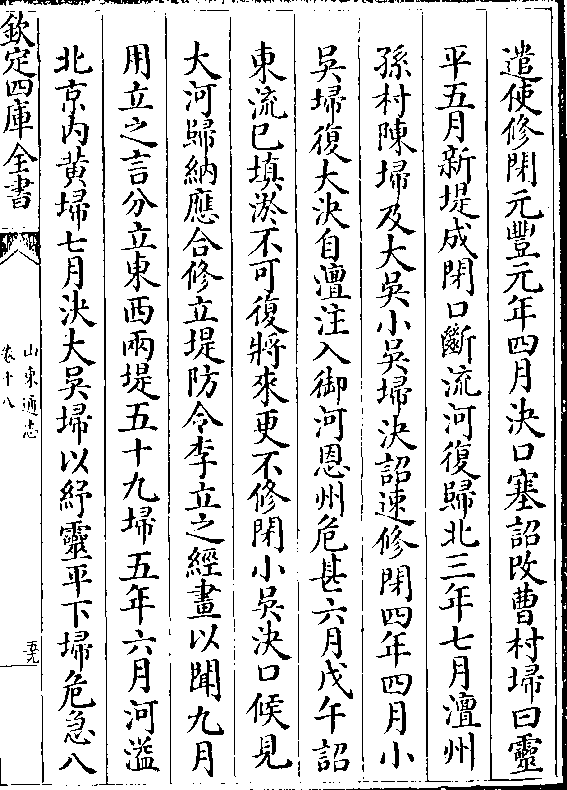 遣使修閉元豐元年四月決口塞詔改曹村埽曰靈
平五月新堤成閉口斷流河復歸北三年七月澶州
孫村陳埽及大吳小吳埽決詔速修閉四年四月小
吳埽復大決自澶注入御河恩州危甚六月戊午詔
東流已填淤不可復將來更不修閉小吳決口候見
大河歸納應合修立堤防令李立之經畫以聞九月
用立之言分立東西兩堤五十九埽五年六月河溢
北京内黄埽七月決大吳埽以紓靈平下埽危急八
欽定四庫全書
山東通志
卷十八